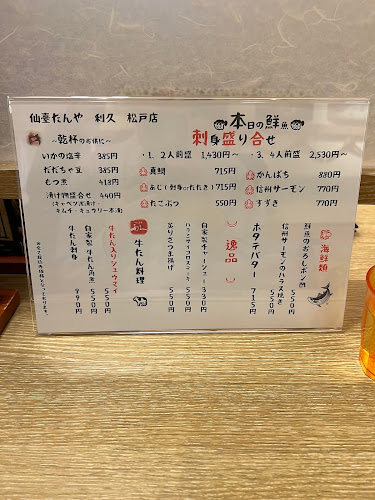 仙臺たんや 利久 松戸店
~乾杯のお供に~
いかの塩辛 385円
だだちゃ豆 385円
もつ煮 418円
漬け物盛合せ 440円
(キャベツ浅漬け・
キムチ・キュウリ一本漬)
本日の鮮魚
刺身盛り合せ
・1、2人前盛 1,430円~
・3、4人前盛 2,530円~
真鯛 715円
あじ(刺身orたたき) 715円
たこぶつ 550円
かんぱち 880円
信州サーモン 770円
すずき 770円
海鮮類
鮮魚のおろしポン酢 550円
信州サーモンのハラス焼き 550円
ホタテバター 715円
逸品
自家製チャーシュー 330円
ハラミサイコロステーキ 550円
炙りさつま揚げ 550円
牛たん料理
牛たん入りシュウマイ 550円
自家製 牛たん角煮 550円
牛たん刺身 990円